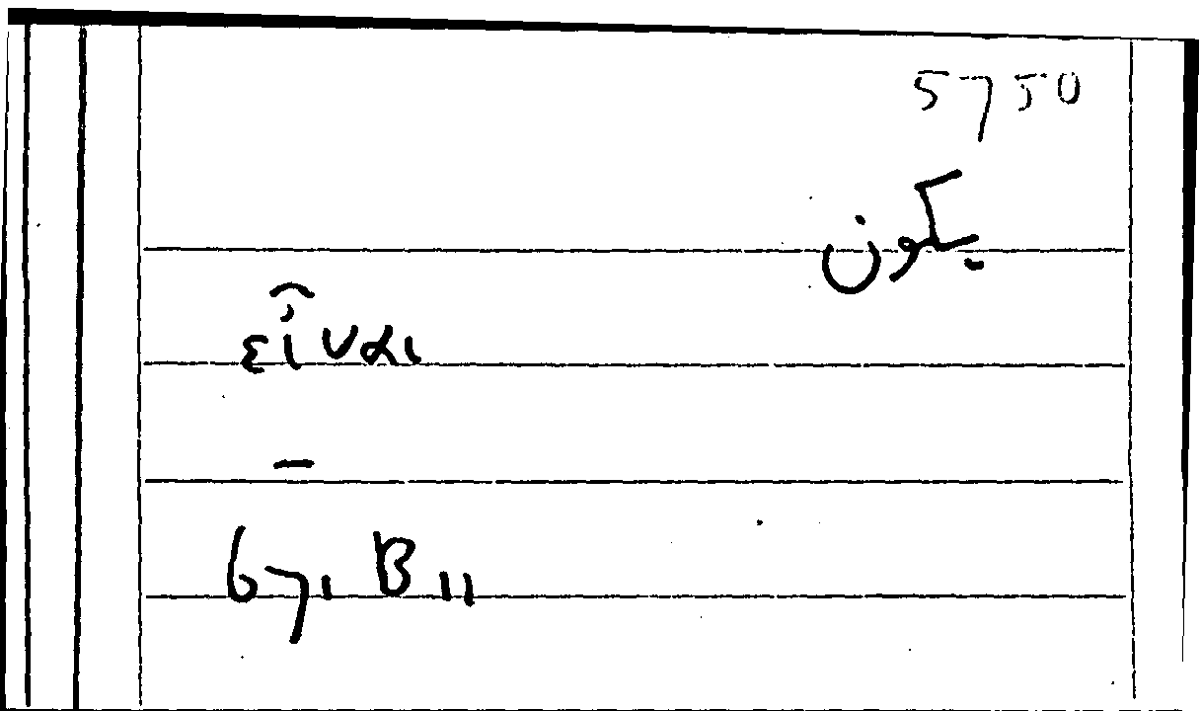 5750
يكون
εἶναι
—
67, B 11